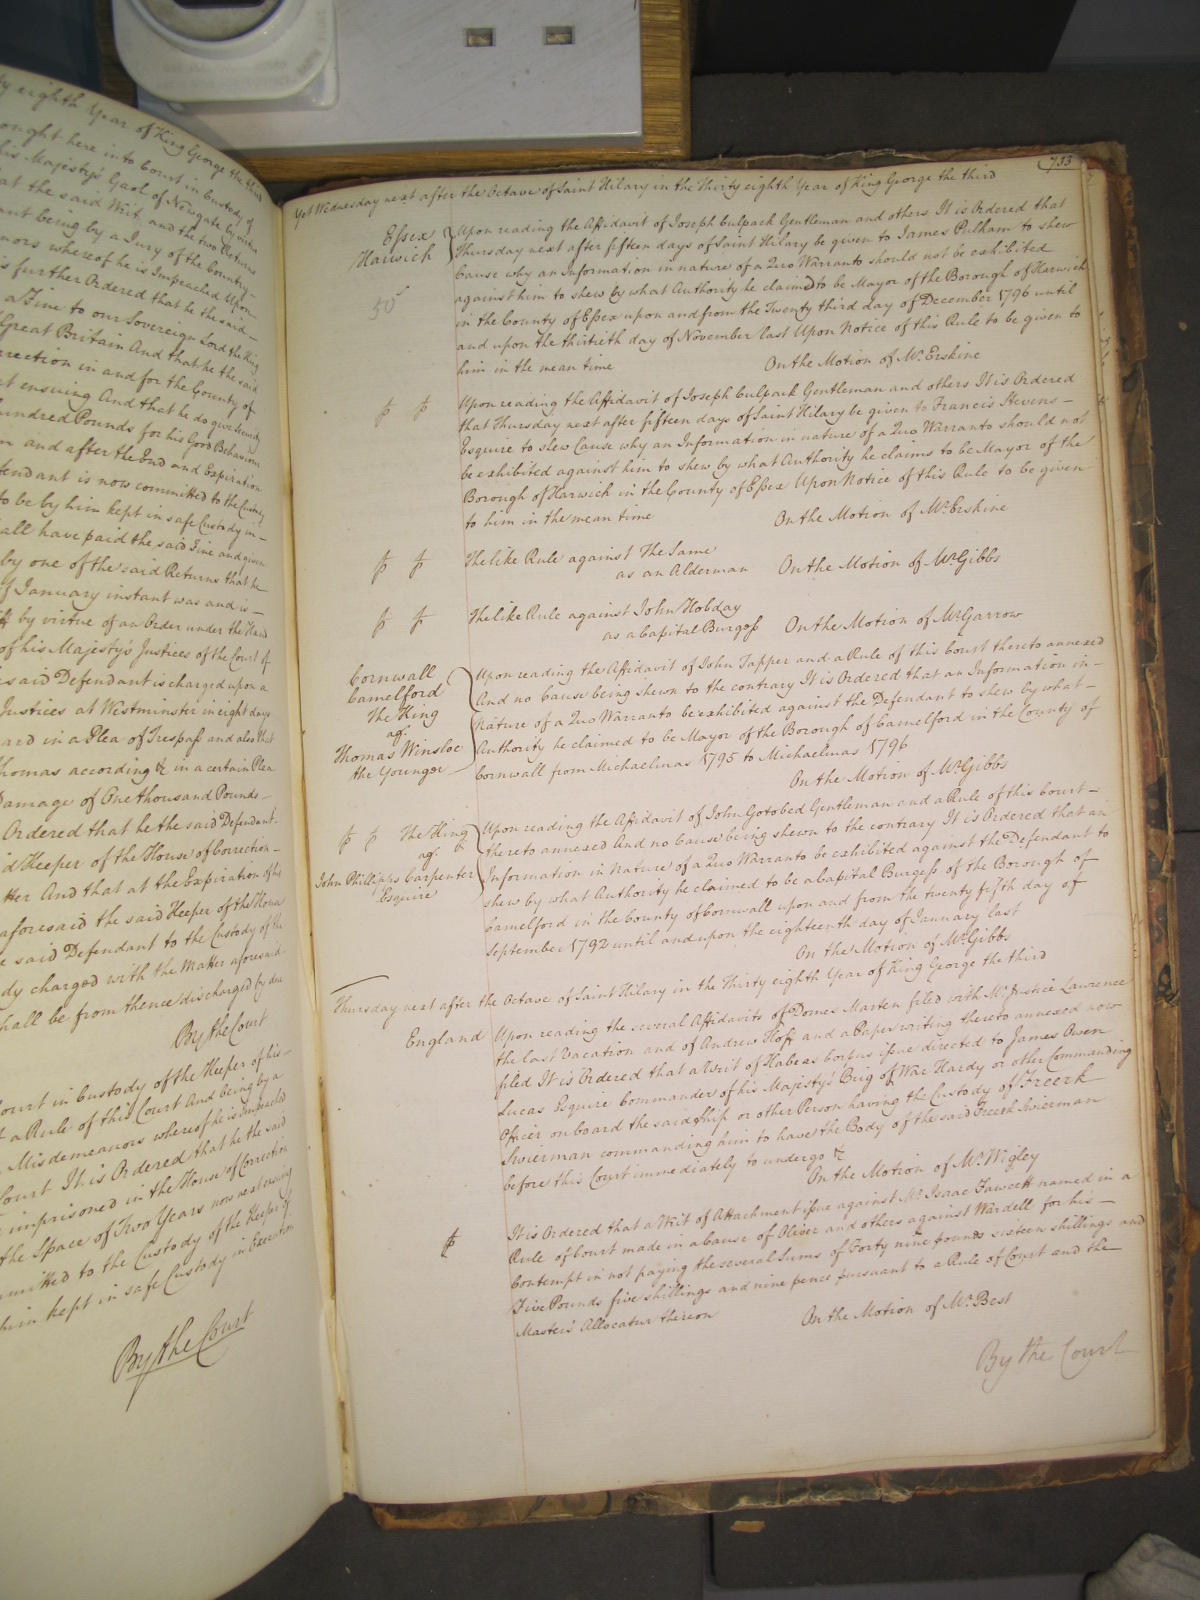 ty eighth Year of King George the third
ought here into Court in Custody of
his Majesty's Gaol of Newgate by virtue
at the said Writ, and the two Returns
ant being by a Jury of the Country
nors whereof he is Impeached Upon
is further Ordered that he the said
a Fine to our Sovereign Lord the King
Great Britain And that he the said
rrection in and for the County of
xt ensuing And that he do give Security
hundred Pounds for his Good Behaviour
m and after the End and Expiration
fendant is now committed to the Custody
to be by him kept in safe Custody in
all have paid the said Fine and given
by one of the said Returns that he
of January instant was and is
ff by virtue of an Order under the Hand
of his Majesty's Justices of the Court of
said Defendant is charged upon a
Justices at Westminster in eight days
ard in a Plea of Trespass and also that
Thomas according &c in a certain Plea
Damage of One thousand Pounds
Ordered that he the said Defendant
id Keeper of the House of Correction
tter And that at the Expiration of the
aforesaid the said Keeper of the House
e said Defendant to the Custody of the
dy charged with the Matter aforesaid
shall be from thence discharged by due
By the Court
Court in Custody of the Keeper of his
f a Rule of this Court And being by a
Misdemeanors whereof he is Impeached
Court It is Ordered that he the said
imprisoned in the House of Correction
the Space of Two Years now next ensuing
mmitted to the Custody of the Keeper of
him kept in safe Custody in Execution
By the Court
733
Yet Wednesday next after the Octave of Saint Hilary in the Thirty eighth Year of King George the third
Essex
Harwich
Upon reading the Affidavit of Joseph Culpack Gentleman and others It is Ordered that
Thursday next after fifteen days of Saint Hilary be given to James Pulham to shew
Cause why an Information in nature of a Quo Warranto should not be exhibited
against him to shew by what Authority he claimed to be Mayor of the Borough of Harwich
in the County of Essex upon and from the Twenty third day of December 1796 until
and upon the thirtieth day of November last Upon Notice of this Rule to be given to
him in the mean time On the Motion of Mr. Erskine
Upon reading the Affidavit of Joseph Culpack Gentleman and others It is Ordered
that Thursday next after fifteen days of Saint Hilary be given to Francis Stevens
Esquire to shew Cause why an Information in nature of a Quo Warranto should not
be exhibited against him to shew by what Authority he claims to be Mayor of the
Borough of Harwich in the County of Essex Upon Notice of this Rule to be given
to him in the mean time On the Motion of Mr. Erskine
The like Rule against The Same
as an Alderman On the Motion of Mr. Gibbs
The like Rule against John Hobday
as a Capital Burgess On the Motion of Mr. Garrow
Cornwall
Camelford
The King
agt.
Thomas Winsloe
the Younger
Upon reading the Affidavit of John Tapper and a Rule of this Court thereto annexed
And no Cause being shewn to the contrary It is Ordered that an Information in
Nature of a Quo Warranto be exhibited against the Defendant to shew by what
Authority he claimed to be Mayor of the Borough of Camelford in the County of
Cornwall from Michaelmas 1795 to Michaelmas 1796
On the Motion of Mr. Gibbs
The King
agt.
John Phillipps Carpenter
Esquire
Upon reading the Affidavit of John Gotobed Gentleman and a Rule of this Court
thereto annexed And no Cause being shewn to the contrary It is Ordered that an
Information in Nature of a Quo Warranto be exhibited against the Defendant to
shew by what Authority he claimed to be a Capital Burgess of the Borough of
Camelford in the County of Cornwall upon and from the twenty fifth day of
September 1792 until and upon the eighteenth day of January last
On the Motion of Mr. Gibbs
Thursday next after the Octave of Saint Hilary in the Thirty eighth Year of King George the third
England
Upon reading the several Affidavits of Domes Marten filed with Mr. Justice Lawrence
the last Vacation and of Andrew Hoft and a Paper writing thereto annexed now
filed It is Ordered that a Writ of Habeas Corpus issue directed to James Owen
Lucas Esquire Commander of his Majesty's Brig of War Hardy or other Commanding
Officer on board the said Ship or other Person having the Custody of Freerk
Swierman commanding him to have the Body of the said Freerk Swierman
before this Court immediately to undergo &c
On the Motion of Mr. Wigley
It is Ordered that a Writ of Attachment issue against Mr. Isaac Fawcett named in a
Rule of Court made in a Cause of Oliver and others against Wardell for his
Contempt in not paying the several Sums of Forty nine pounds sixteen shillings and
Five Pounds five shillings and nine pence pursuant to a Rule of Court and the
Master's Allocatur thereon On the Motion of Mr. Best
By the Court